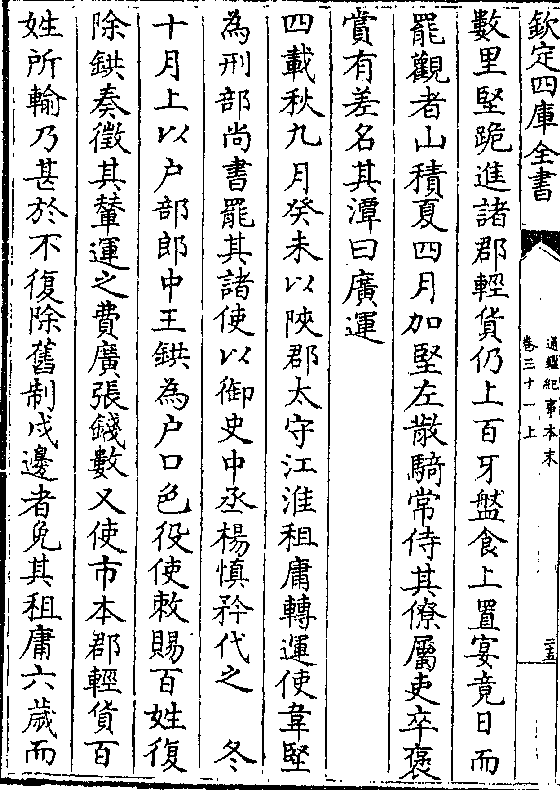 欽定四庫全書
通鑑紀事本末
卷三十一上
二五
數里堅跪進諸郡輕貨仍上百牙盤食上置宴竟日而
罷觀者山積夏四月加堅左散騎常侍其僚屬吏卒褒
賞有差名其潭曰廣運
四載秋九月癸未以陜郡太守江淮租庸轉運使韋堅
為刑部尚書罷其諸使以御史中丞楊慎矜代之　冬
十月上以户部郎中王鉷為户口色役使敕賜百姓復
除鉷奏徵其輦運之費廣張錢數又使市本郡輕貨百
姓所輸乃甚於不復除舊制戍邊者免其租庸六歲而